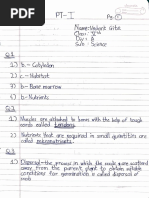 PT-I
Pg-①
Name:- Vedant Gite
Class:- Vth
Div :- A
Sub :- Science
Q.1
1) b - Cotyledon
2) c - Nutrient
3) b - Bone marrow
4) b - Nutrients
Q.2
1) Muscles are attached to bones with the help of tough
cords called tendons.
2) Nutrients that are required in small quantities are
called micronutrients.
Q.3
1) Dispersal:- the process in which seeds are scattered
away from the parent plant to obtain suitable
conditions for germination is called dispersal of
seeds